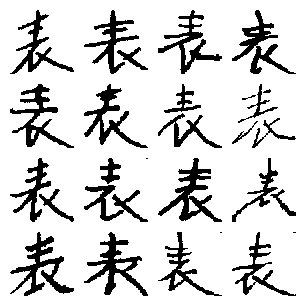 表表表表
表表表表
表表表表
表表表表